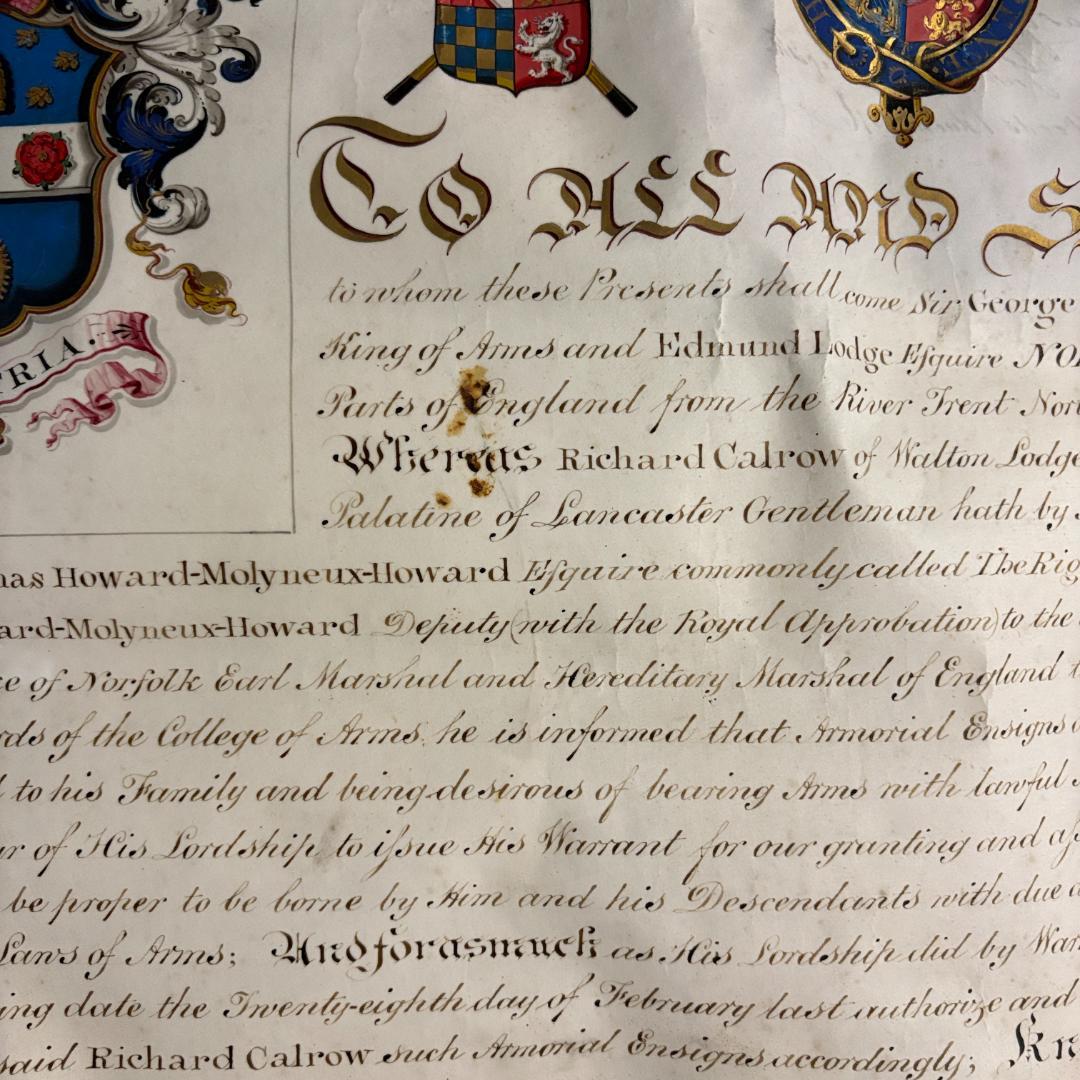 TO ALL AND S
to whom these Presents shall come Sir George
King of Arms and Edmund Lodge Eſquire NO
TRIA.
Parts of England from the River Trent Nor
Whereas Richard Calrow of Walton Lodge
Palatine of Lancaster Gentleman hath by
has Howard-Molyneux-Howard Eſquire commonly called The Rig
ard-Molyneux-Howard Deputy (with the Royal Approbation) to the
ke of Norfolk Earl Marshal and Hereditary Marshal of England t
rds of the College of Arms, he is informed that Armorial Ensigns
l to his Family and being desirous of bearing Arms with lawful
ur of His Lordship to iſsue His Warrant for our granting and aſ
be proper to be borne by Him and his Descendants with due
Laws of Arms; And forasmuch as His Lordship did by War
ing date the Twenty-eighth day of February last authorize and
said Richard Calrow such Armorial Ensigns accordingly; Kn